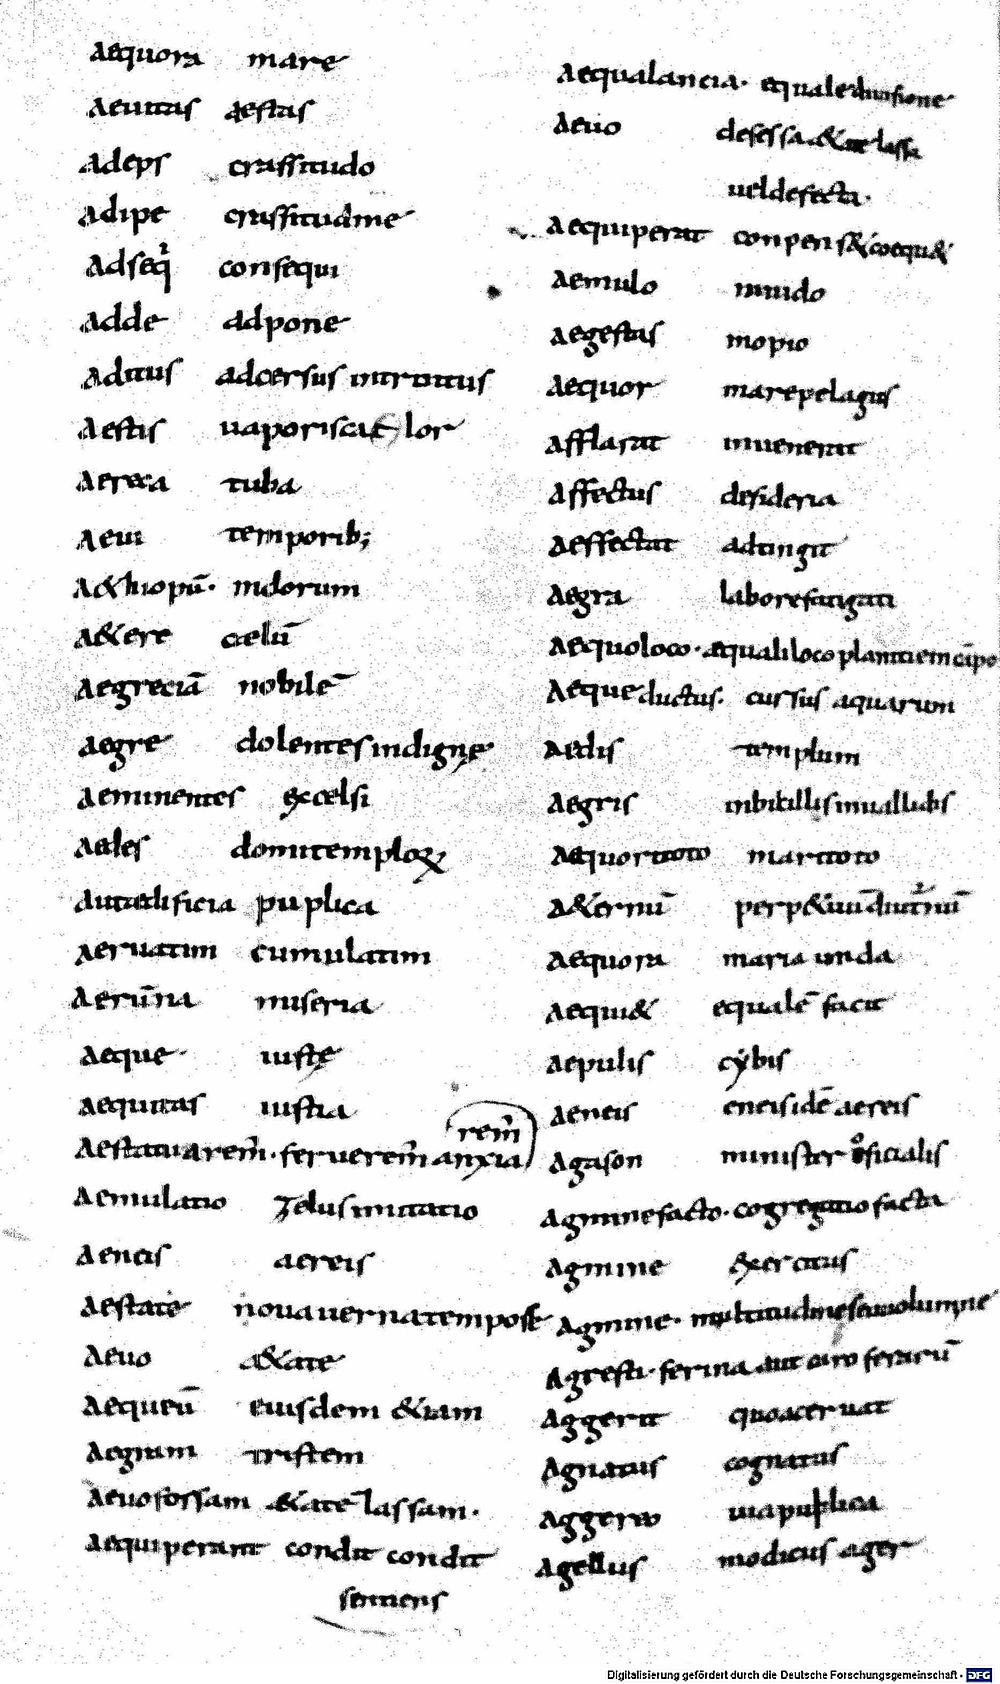 Aequora mare
Aeuitas aestas
Adeps crassitudo
Adipe crassitudine
Adseq̄ consequi
Adde adpone
Aditus adcersus introitus
Aestis uaporis calor
Aerea tuba
Aeui temporib;
A&hiopū· indorum
A&ere caelū
Aegreciā nobilē
Aegre dolentes indignę
Aeminentes excelsi
Aedes domi temploꝝ
Aut aedificia puplica
Aeruatim cumulatim
Aerūna miseria
Aeque· iustę
Aequitas iustia
rem̄
Aestatuarem̄· feruerem̄ anxia
Aemulatio zelus imitatio
Aeneis aereis
Aestate noua uerna tempost
Aeuo a&ate
Aequeū eiusdem &iam
Aegram tristem
Aeuo fossam &ate lassam·
Aequiperant condit condit
sentiens
Aequalancia· equale diuisione
Aeuo defessa a&ate lassa
uel defecta·
Aequiperat conpens& coequ&
Aemulo inuido
Aegestas inopio
Aequor mare pelagus
Afflarat inuenerat
Affectus desideria
Aeffectat adtingit
Aegra labore fatigati
Aequoloco· aequali loco planitiem cāpo
Aequeductus· cursus aquarum
Aedis templum
Aegris inbicillis inuallidis
Aequor toto mari toto
A&ernū perp&uū diut̄nū
Aequora maria unda
Aequi& equalē facit
Aepulis cybis
Aeneis eneis idē aereis
Agason minister oficialis
Agmine facto· cogregatio facta
Agmine exercitus
Agmine· multitudine seu uolumine
Agresti· ferina aut ferarū
Aggerit quoaceruat
Agnatus cognatus
Aggereo uia puplica
Agellus modicus ager
Digitalisierung gefördert durch die Deutsche Forschungsgemeinschaft - DFG